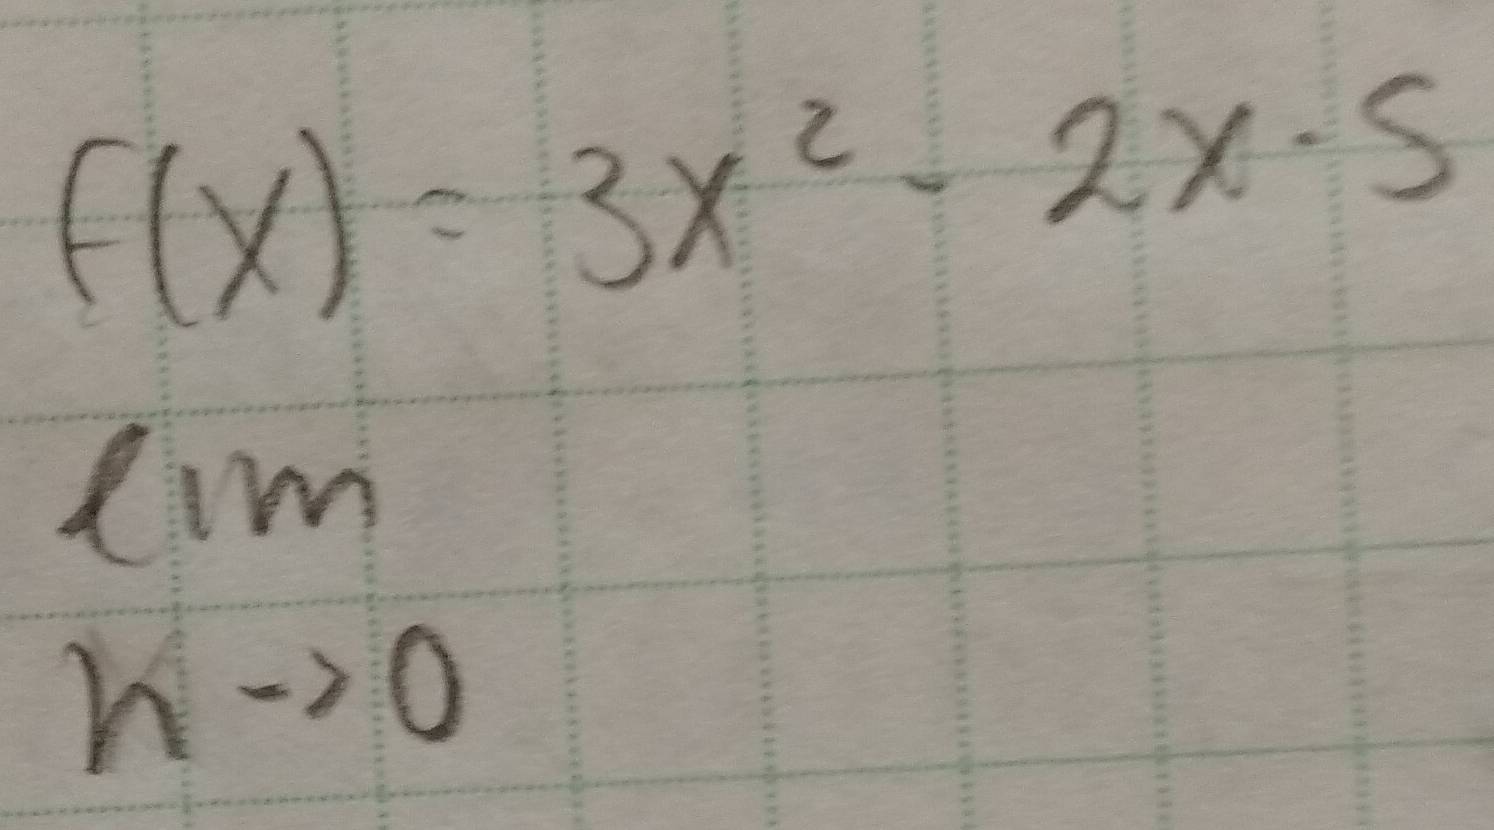 f(x) = 3x² - 2x - 5
lim
h -> 0